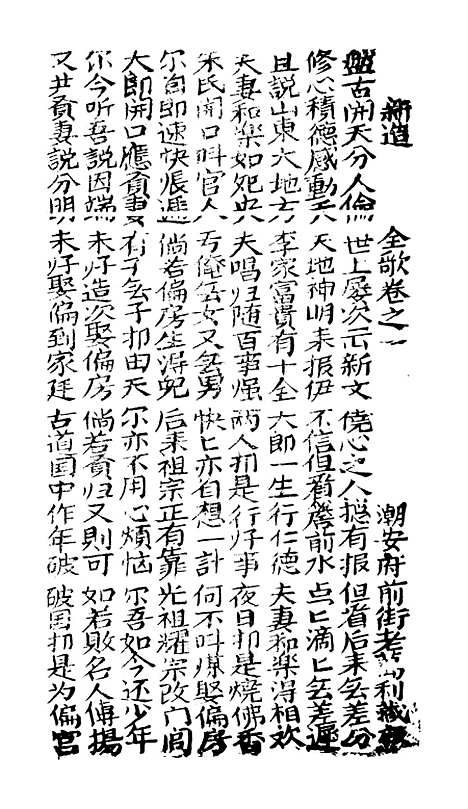 新造 全歌卷之一 潮安府前街老 利
盤古開天分人倫 世上屡次云新文 侥心之人摠有报 但看后来艺差分
修心積德感動天 天地神明来报伊 不信但看簷前水 点匕滴匕艺差遲
且説山東大地方 李家富貴有十全 大郎一生行仁德 夫妻和樂得相欢
夫妻和樂如死央 夫唱归随百事强 两人扣是行好事 夜日扣是燒佛香
朱氏開口叫官人 俺艺女又艺男 快匕亦自想一計 何不叫媒娶偏房
尔自即速快張遲 倘若偏房生得兒 后来祖宗正有靠 光祖耀宗改门闾
大郎開口應賢妻 有子艺子扣由天 尔亦不用心煩恼 尔吾如今还少年
尔今听吾說因端 未好造次娶偏房 倘若賢归又則可 如若敗名人傳揚
又共賢妻説分明 未好娶偏到家廷 古道国中作年破 破国扣是为偏宫